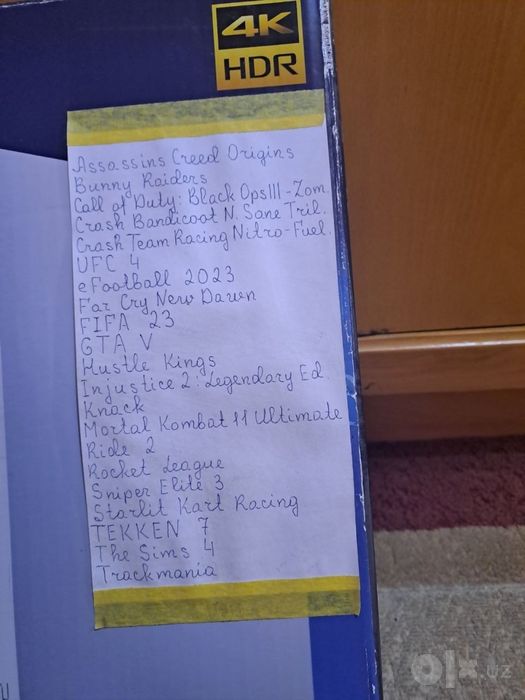 4K
HDR
Assassins Creed Origins
Bunny Raiders
Call of Duty: Black Ops III - Zom.
Crash Bandicoot N. Sane Tril.
Crash Team Racing Nitro-Fuel.
UFC 4
eFootball 2023
Far Cry New Dawn
FIFA 23
GTA V
Hustle Kings
Injustice 2: Legendary Ed.
Knack
Mortal Kombat 11 Ultimate
Ride 2
Rocket League
Sniper Elite 3
Starlit Kart Racing
TEKKEN 7
The Sims 4
Trackmania
olx.uz